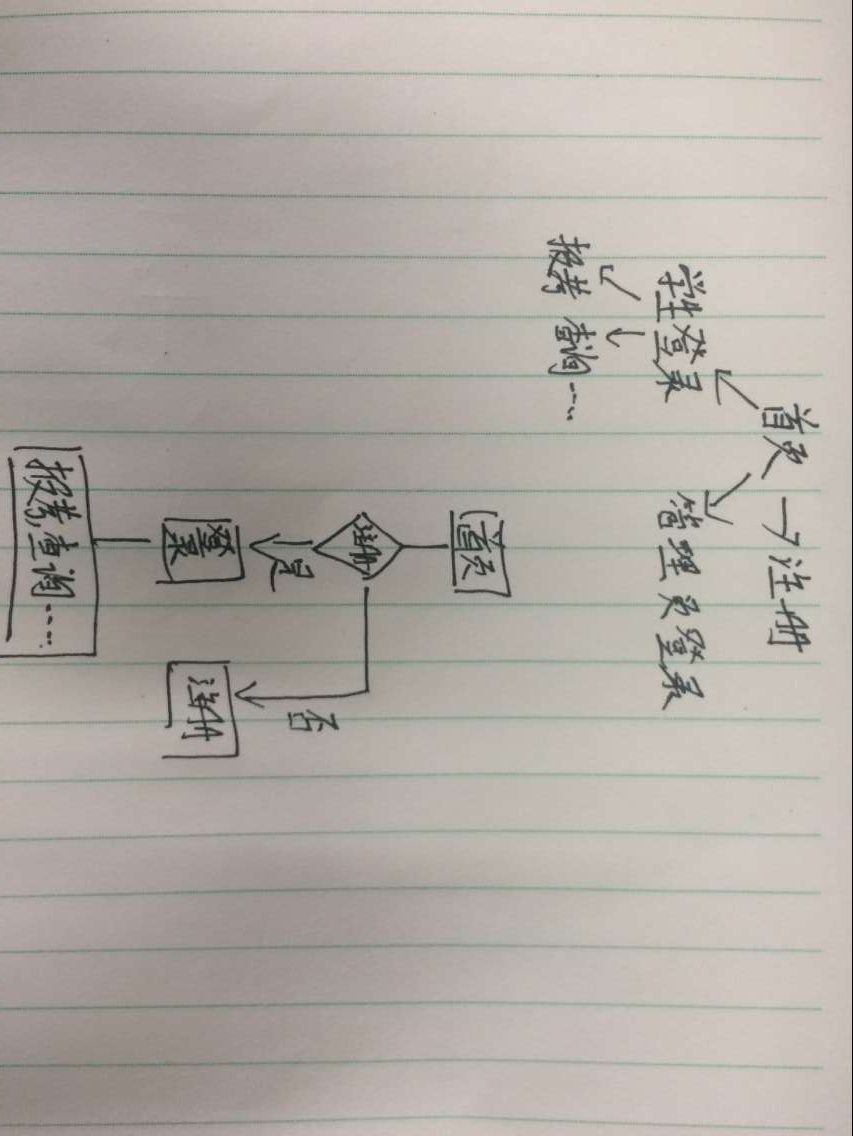 首页 → 注册
学生登录 管理员登录
报考 查询....
首页
注册
是
否
登录
注册
报考,查询.....